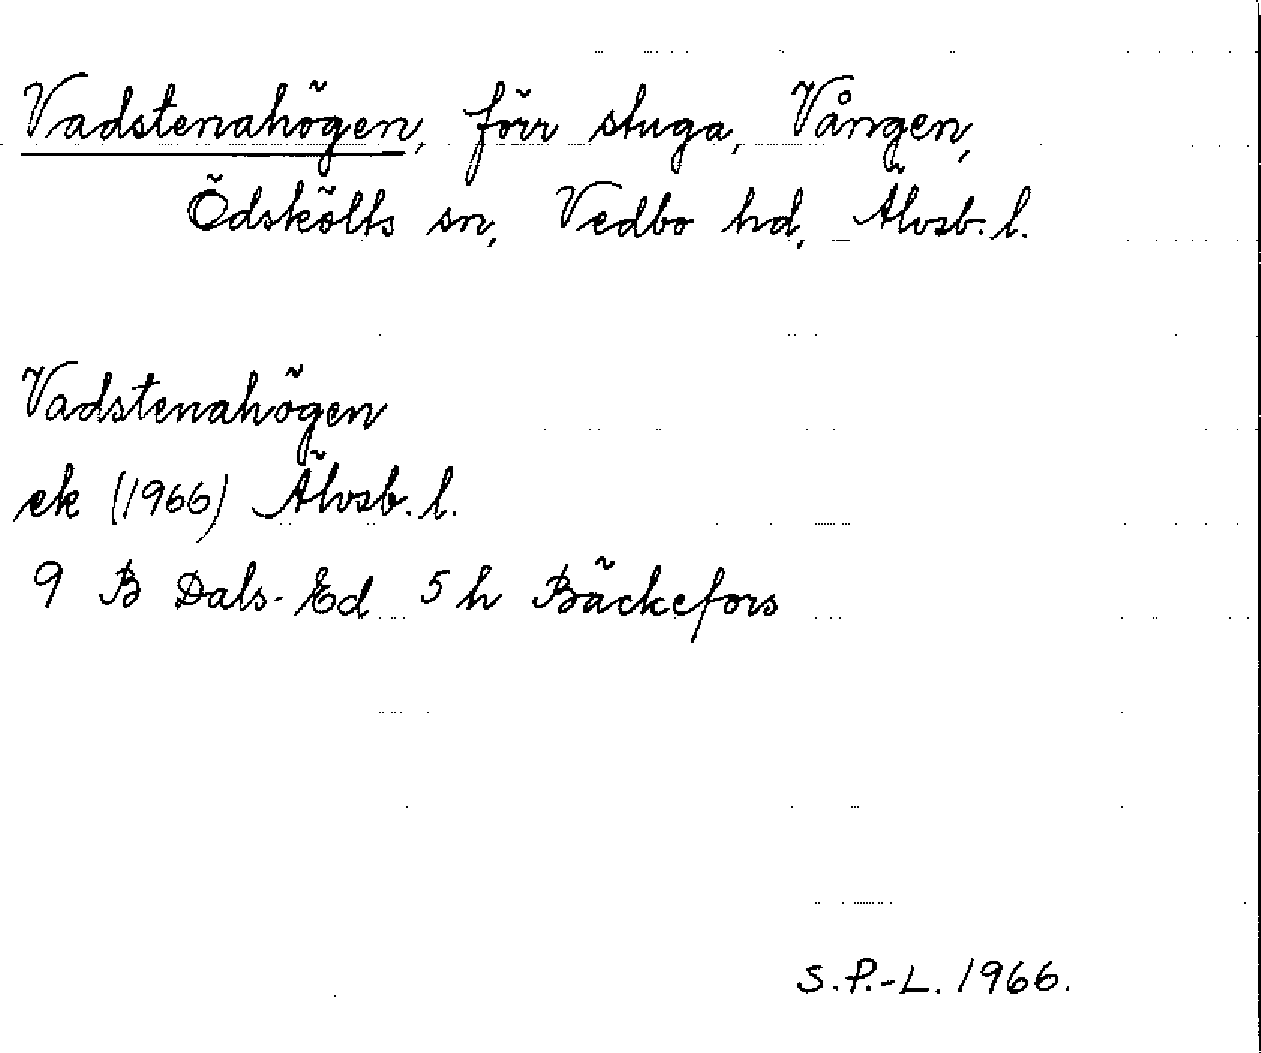 Vadstenahögen, förr stuga, Vången,
Ödskölts sn, Vedbo hd, Älvsb. l.
Vadstenahögen
ek (1966) Älvsb. l.
9 B Dals-Ed 5 h Bäckefors
S.P.-L. 1966.